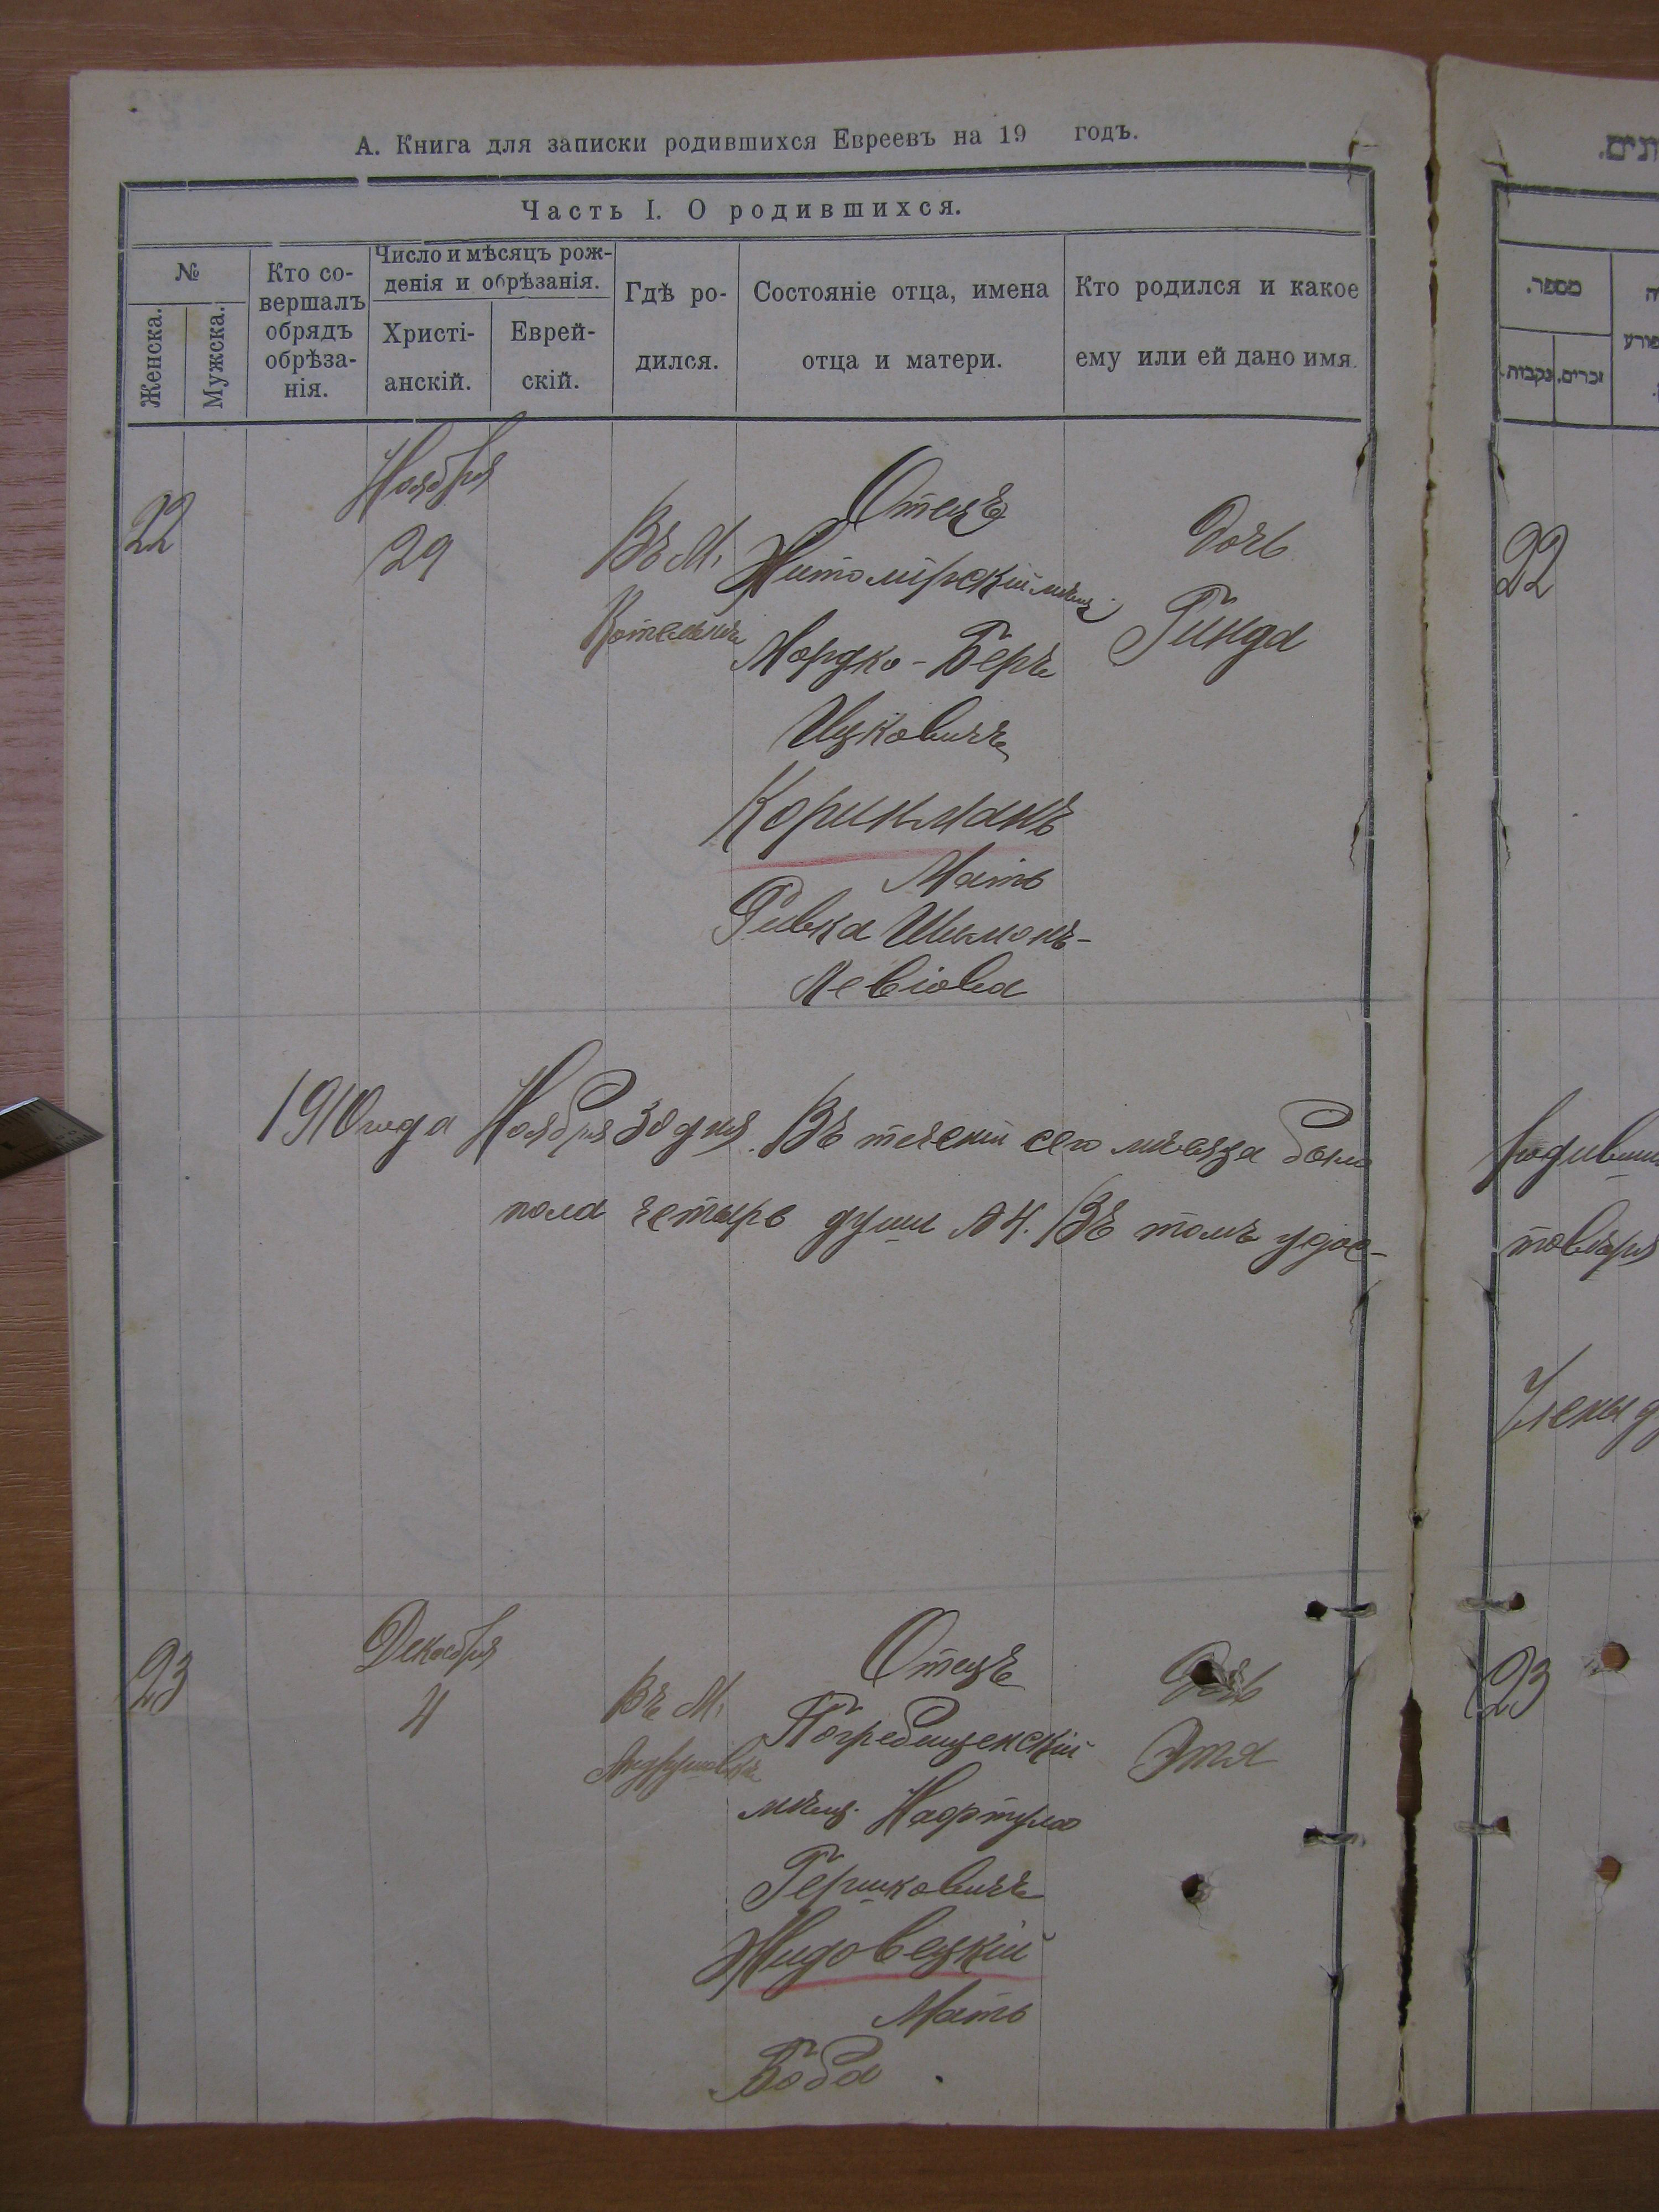 А. Книга для записки родившихся Евреевъ на 19 годъ.
Часть I. О родившихся.
№
Женска.
Мужска.
Кто со-
вершалъ
обрядъ
обрѣза-
нія.
Число и мѣсяцъ рож-
денія и обрѣзанія.
Христі-
анскій.
Еврей-
скій.
Гдѣ ро-
дился.
Состояніе отца, имена
отца и матери.
Кто родился и какое
ему или ей дано имя.
22
Ноября
29
Въ М.
Котельнѣ
Отецъ
Житомірскій мѣщ.
Мордко-Беръ
Ицковичъ
Коринманъ
Мать
Ривка Шимонъ-
Левіова
Дочь
Гинда
1910 года Ноября 30 дня. Въ теченіи сего мѣсяца было
пола четыре души №4. Въ томъ удос-
23
Декабря
4
Въ М.
Андрушовкѣ
Отецъ
Погребищенскій
мѣщ. Нафтула
Гершковичъ
Жидовецкій
Мать
Боба
Дочь
Этя
מספר.
נקבות.
זכרים.
22
товѣря
Члены
23